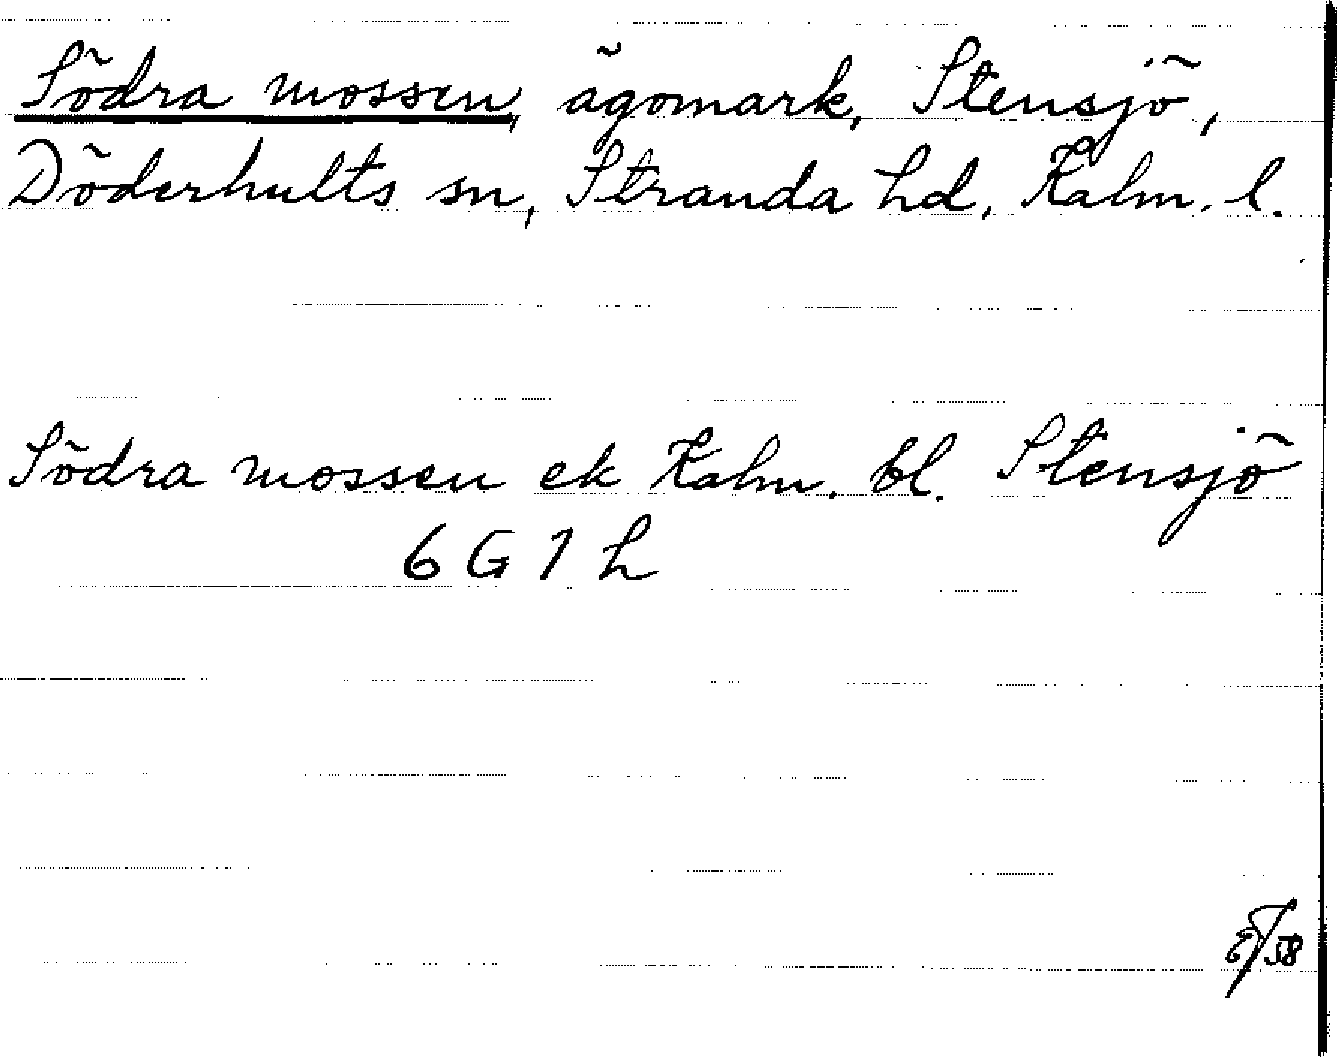 Södra mossen, ägomark, Stensjö,
Döderhults sn, Stranda hd, Kalm. l.
Södra mossen ek Kalm. bl. Stensjö
6 G 1 h